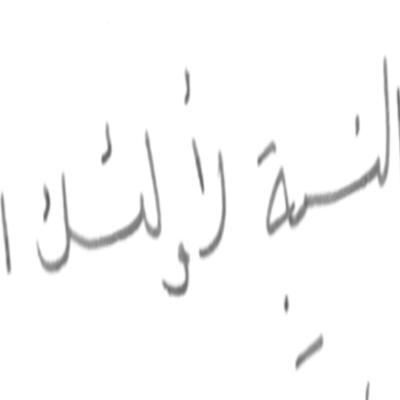 النسبة لأولئك ا